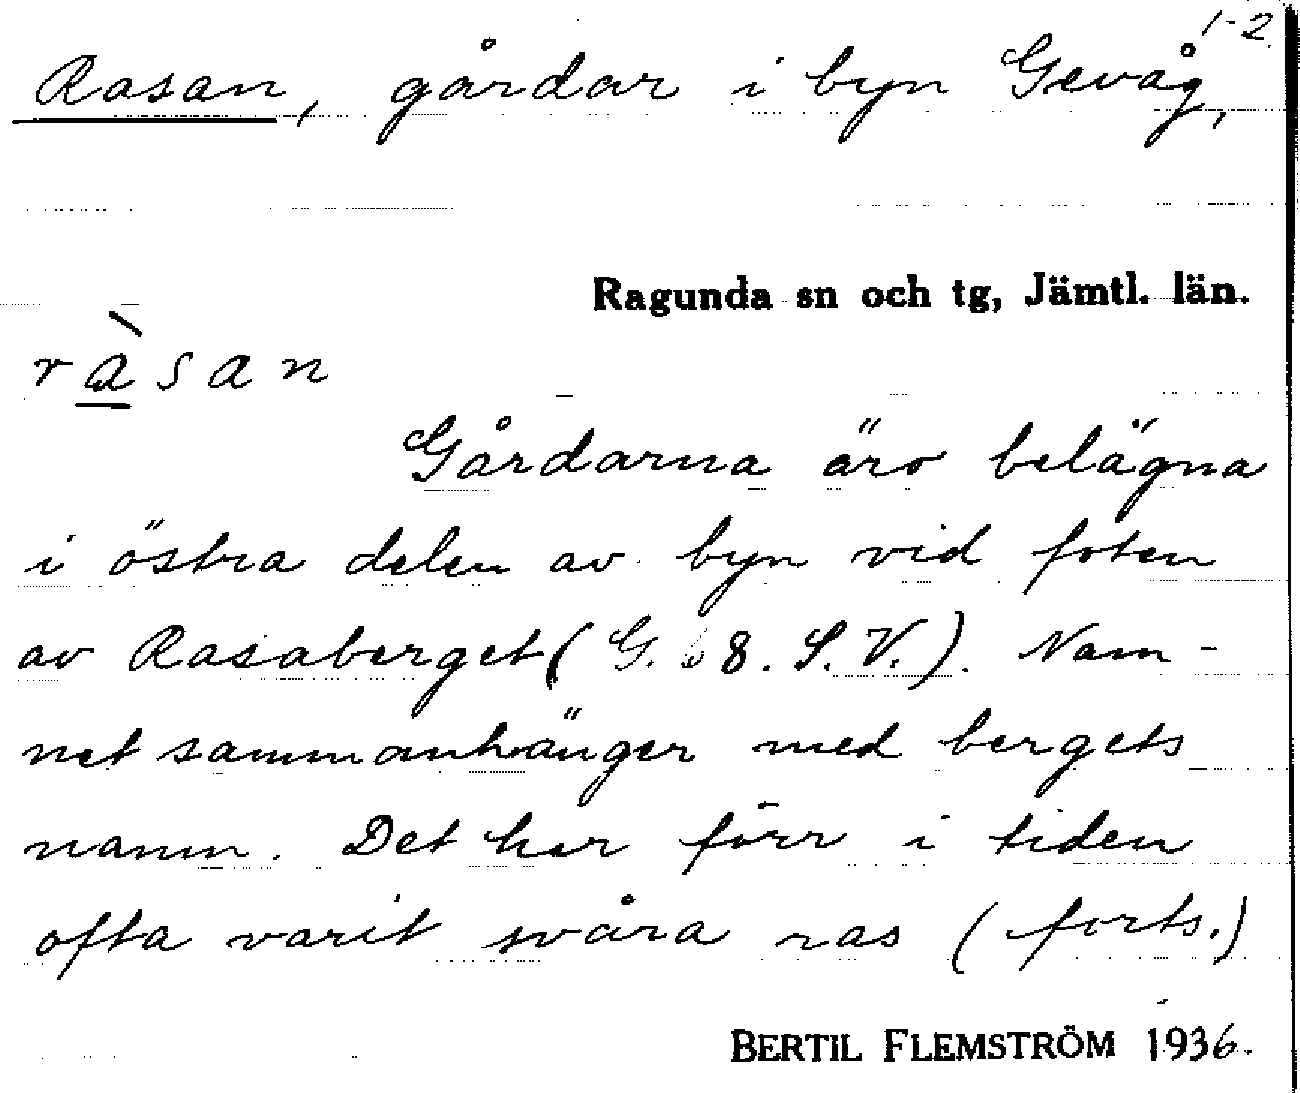 1-2.
Rasan, gårdar i byn Gevåg,
Ragunda sn och tg, Jämtl. län.
ràsan
Gårdarna äro belägna
i östra delen av byn vid foten
av Rasaberget (G. 8. S. V.). Nam-
net sammanhänger med bergets
namn. Det har förr i tiden
ofta varit svåra ras (forts.)
BERTIL FLEMSTRÖM 1936.